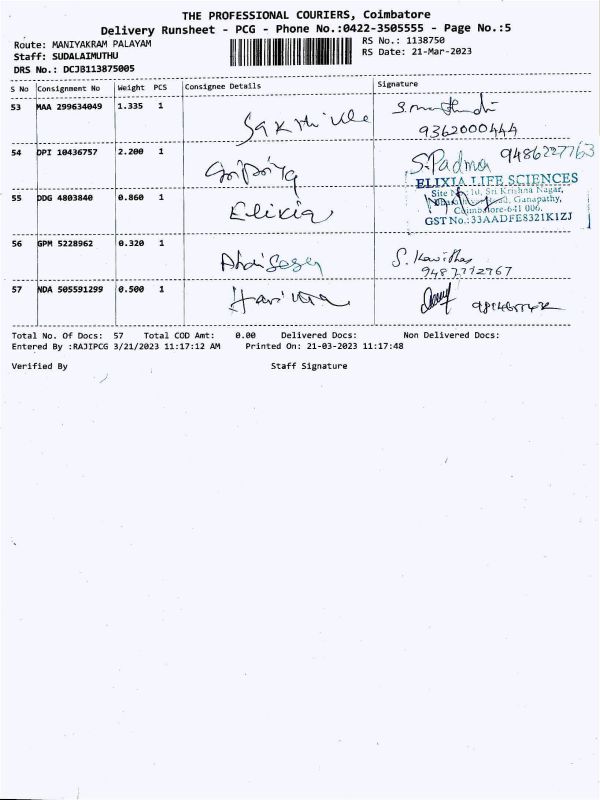 THE PROFESSIONAL COURIERS, Coimbatore
Delivery Runsheet - PCG - Phone No.:0422-3505555 - Page No.:5
Route: MANIYAKRAM PALAYAM
RS No.: 1138750
Staff: SUDALAIMUTHU
RS Date: 21-Mar-2023
DRS No.: DCJB113875005
S No Consignment No Weight PCS Consignee Details Signature
53 MAA 299634049 1.335 1
9362000444
54 DPI 10436757 2.200 1 S.Padma 9486227763
ELIXIA LIFE SCIENCES
Sri Krishna Nagar,
55 DDG 4803840 0.860 1 Elixia Ganapathy,
Coimbatore-641 006.
GST No.:33AADFE8321K1ZJ
56 GPM 5228962 0.320 1 S. Kavitha
9487712767
57 NDA 505591299 0.500 1
Total No. Of Docs: 57 Total COD Amt: 0.00 Delivered Docs: Non Delivered Docs:
Entered By :RAJIPCG 3/21/2023 11:17:12 AM Printed On: 21-03-2023 11:17:48
Verified By Staff Signature